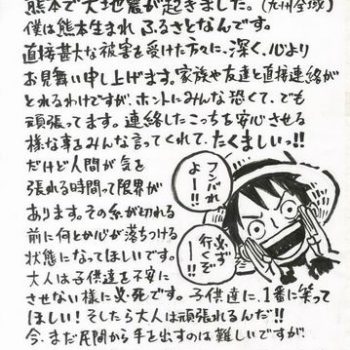 熊本で大地震が起きました。(九州全域)
僕は熊本生まれ ふるさとなんです。
直接甚大な被害を受けた方々に、深く、心より
お見舞い申し上げます。家族や友達と直接連絡が
とれるわけですが、ホントにみんな恐くて、でも
頑張ってます。連絡したこっちを安心させる
様な事をみんな言ってくれて、たくましいっ!!
だけど人間が気を
張れる時間って限界が
あります。その糸が切れる
前に何とか心が落ちつける
状態になってほしいです。
大人は子供達を不安に
させない様に必死です。子供達に、1番に笑って
ほしい!そしたら大人は頑張れるんだ!!
今、まだ民間から手を出すのは難しいですが、
フンバれ
よー!!
必ず
行くぞ
ー!!